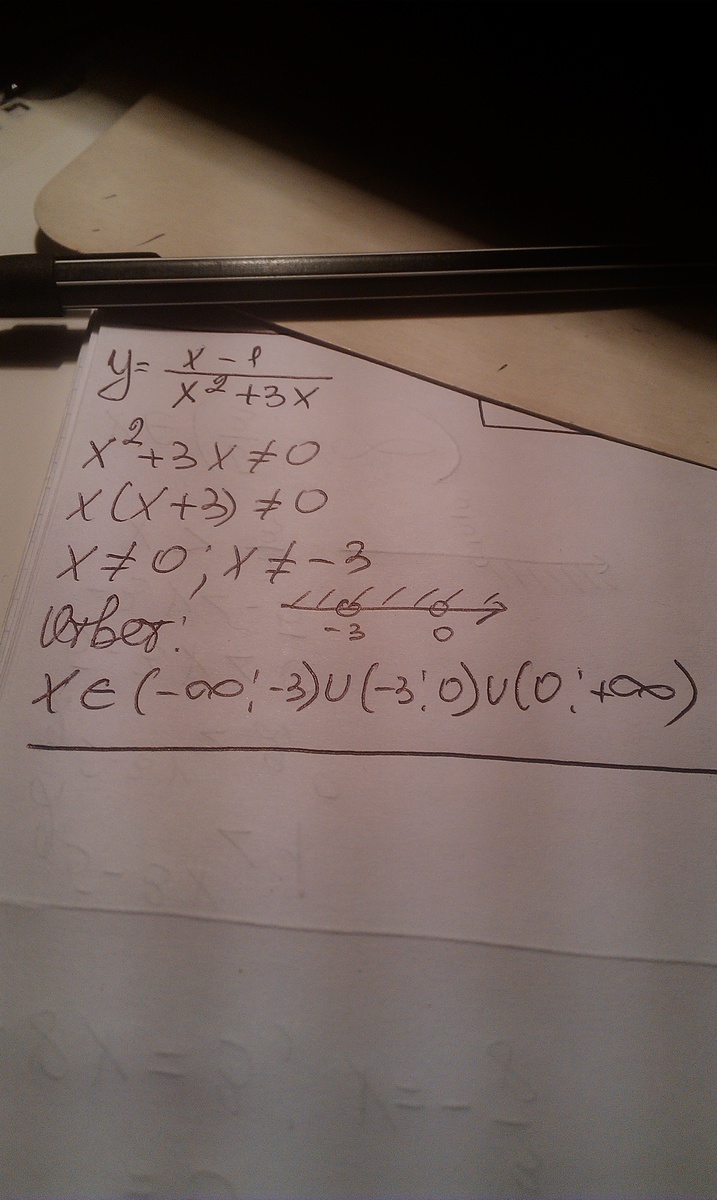 y = (x - 1)/(x² + 3x)
x² + 3x ≠ 0
x(x+3) ≠ 0
x ≠ 0; x ≠ -3
-3 0
Ответ:
x ∈ (-∞; -3) ∪ (-3; 0) ∪ (0; +∞)